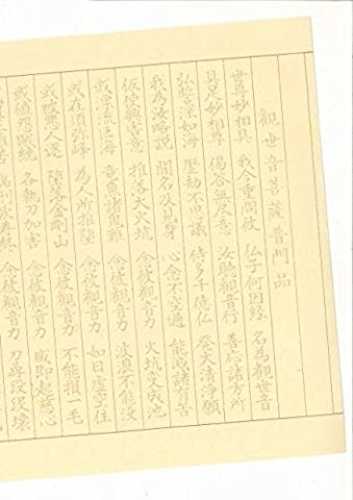 觀世音菩薩普門品
世尊妙相具 我今重問彼 佛子何因緣 名為觀世音
具足妙相尊 偈答無盡意 汝聽觀音行 善應諸方所
弘誓深如海 歷劫不思議 侍多千億佛 發大清淨願
我為汝略說 聞名及見身 心念不空過 能滅諸有苦
假使興害意 推落大火坑 念彼觀音力 火坑變成池
或漂流巨海 龍魚諸鬼難 念彼觀音力 波浪不能沒
或在須彌峰 為人所推墮 念彼觀音力 如日虛空住
或被惡人逐 墮落金剛山 念彼觀音力 不能損一毛
或值怨賊繞 各執刀加害 念彼觀音力 咸即起慈心
念彼觀音力 刀尋段段壞